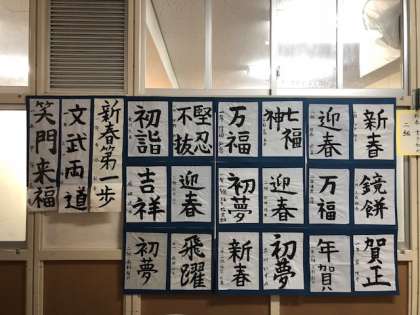 新春
迎春
七福
神
万福
堅忍
不抜
初詣
鏡餅
万福
迎春
初夢
迎春
吉祥
賀正
年賀
初夢
新春
飛躍
初夢
新春第一歩
文武両道
笑門来福